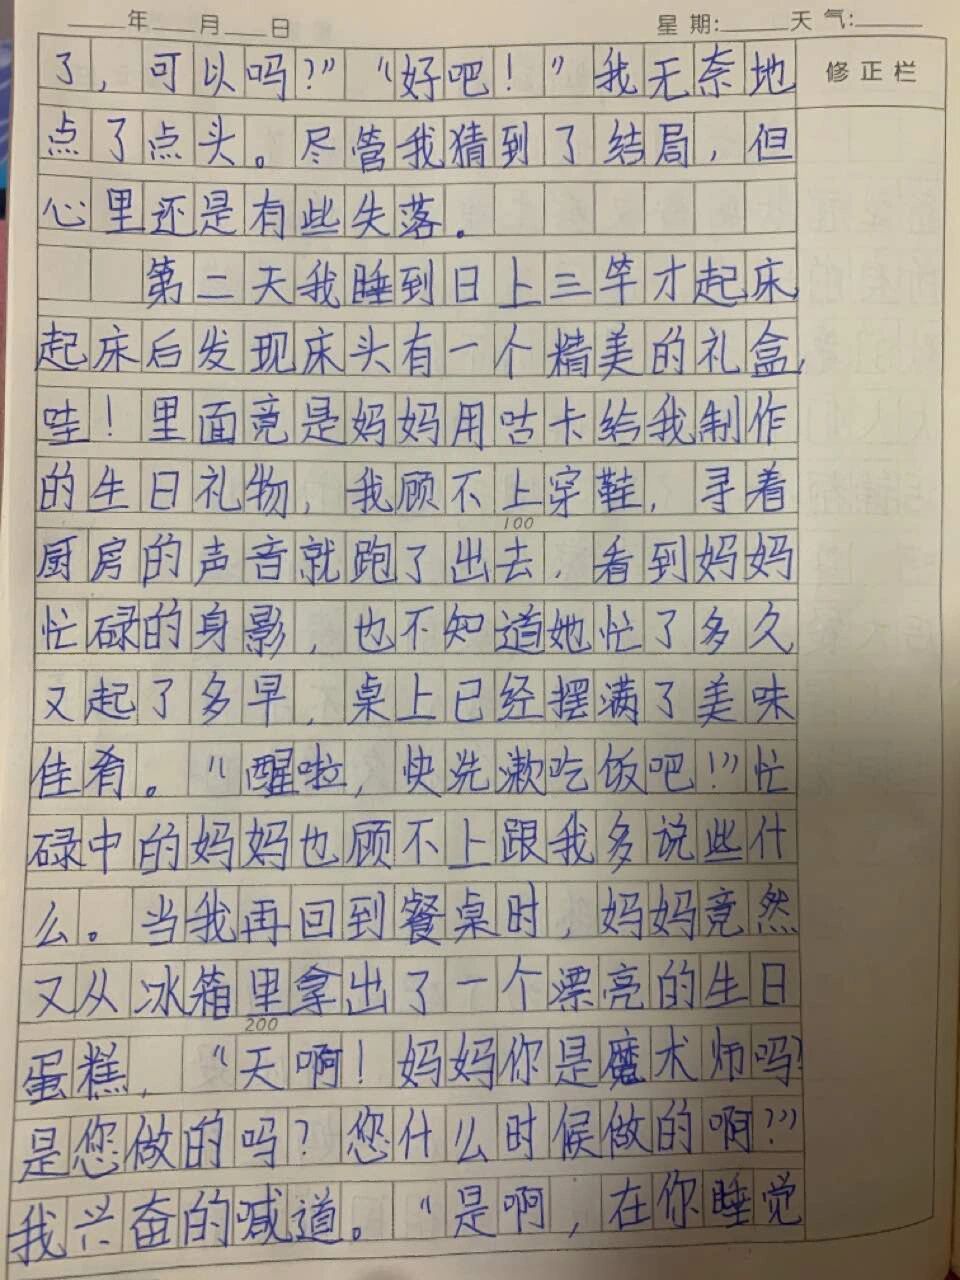 年 月 日 星期: 天气:
修正栏
了,可以吗?”“好吧!”我无奈地
点了点头。尽管我猜到了结局,但
心里还是有些失落。
第二天我睡到日上三竿才起床,
起床后发现床头有一个精美的礼盒,
哇!里面竟是妈妈用咕卡给我制作
的生日礼物,我顾不上穿鞋,寻着
100
厨房的声音就跑了出去,看到妈妈
忙碌的身影,也不知道她忙了多久
又起了多早,桌上已经摆满了美味
佳肴。“醒啦,快洗漱吃饭吧!”忙
碌中的妈妈也顾不上跟我多说些什
么。当我再回到餐桌时,妈妈竟然
又从冰箱里拿出了一个漂亮的生日
200
蛋糕,“天啊!妈妈你是魔术师吗?
是您做的吗?您什么时候做的啊?”
我兴奋的喊道。“是啊,在你睡觉